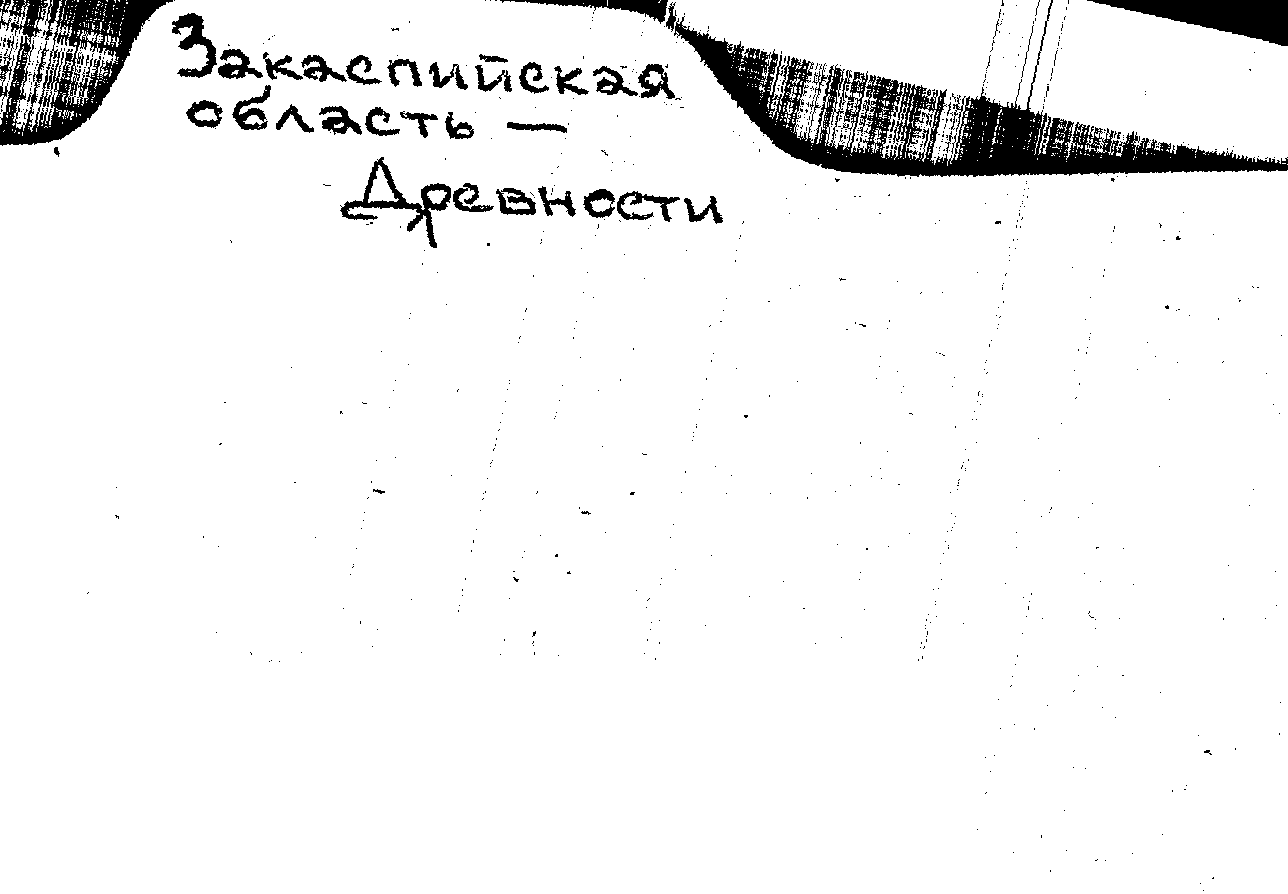 Закаспийская
область —
Древности